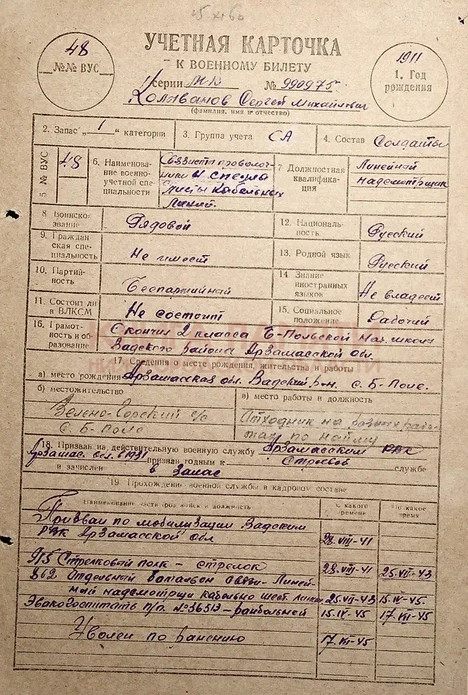 48
№№ ВУС
УЧЕТНАЯ КАРТОЧКА
К ВОЕННОМУ БИЛЕТУ
серии МК № 990975
1911
1. Год рождения
Колыванов Сергей Михайлович
(фамилия, имя и отчество)
2. Запас „1“ категории
3. Группа учета СА
4. Состав Солдаты
5 № ВУС 48
6. Наименование военно-учетной специальности
линий
7 Должностная квалификация
Линейный надсмотрщик
8 Воинское звание Рядовой
12. Национальность Русский
9. Гражданская специальность Не имеет
13. Родной язык Русский
10. Партийность Беспартийный
14 Знание иностранных языков Не владеет
11. Состоит ли в ВЛКСМ Не состоит
15. Социальное положение Рабочий
16. Грамотность и образование Окончил 2 класса Б-Польской нач. школы
Вадского района Арзамасской обл.
17. Сведения о месте рождения, жительства и работы
а) место рождения Арзамасская обл. Вадский р-н. с. Б-Поле.
б) местожительство
в) место работы и должность
с/с
с. Б-Поле
Отходник на разные работы по найму
18. Призван на действительную военную службу Арзамасским РВК
признан годным к Строевой службе
и зачислен в Запас
19. Прохождение военной службы в кадровом составе
Наименование части
и должность
С какого времени
По какое время
Призван по мобилизации Вадским
РВК Арзамасской обл 28.VIII-41
Стрелковый полк – стрелок 28.VIII-41 25.VII-43
862 Отдельный батальон связи – Линейный надсмотрщик кабельно шест. линий 25.VII-43 15.IV-45.
Эвакогоспиталь п/п № 36513 – ранбольной 15.IV-45 17.XI-45
Уволен по ранению 17.XI-45